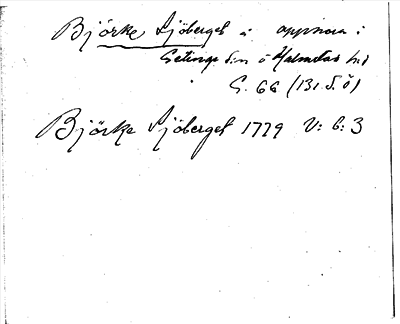 Björke Sjöberget i Uppsnera i
Getinge s:n o Halmstad hd
S. 66 (131 S. Ö)
Björke Sjöberget 1779 V: b: 3